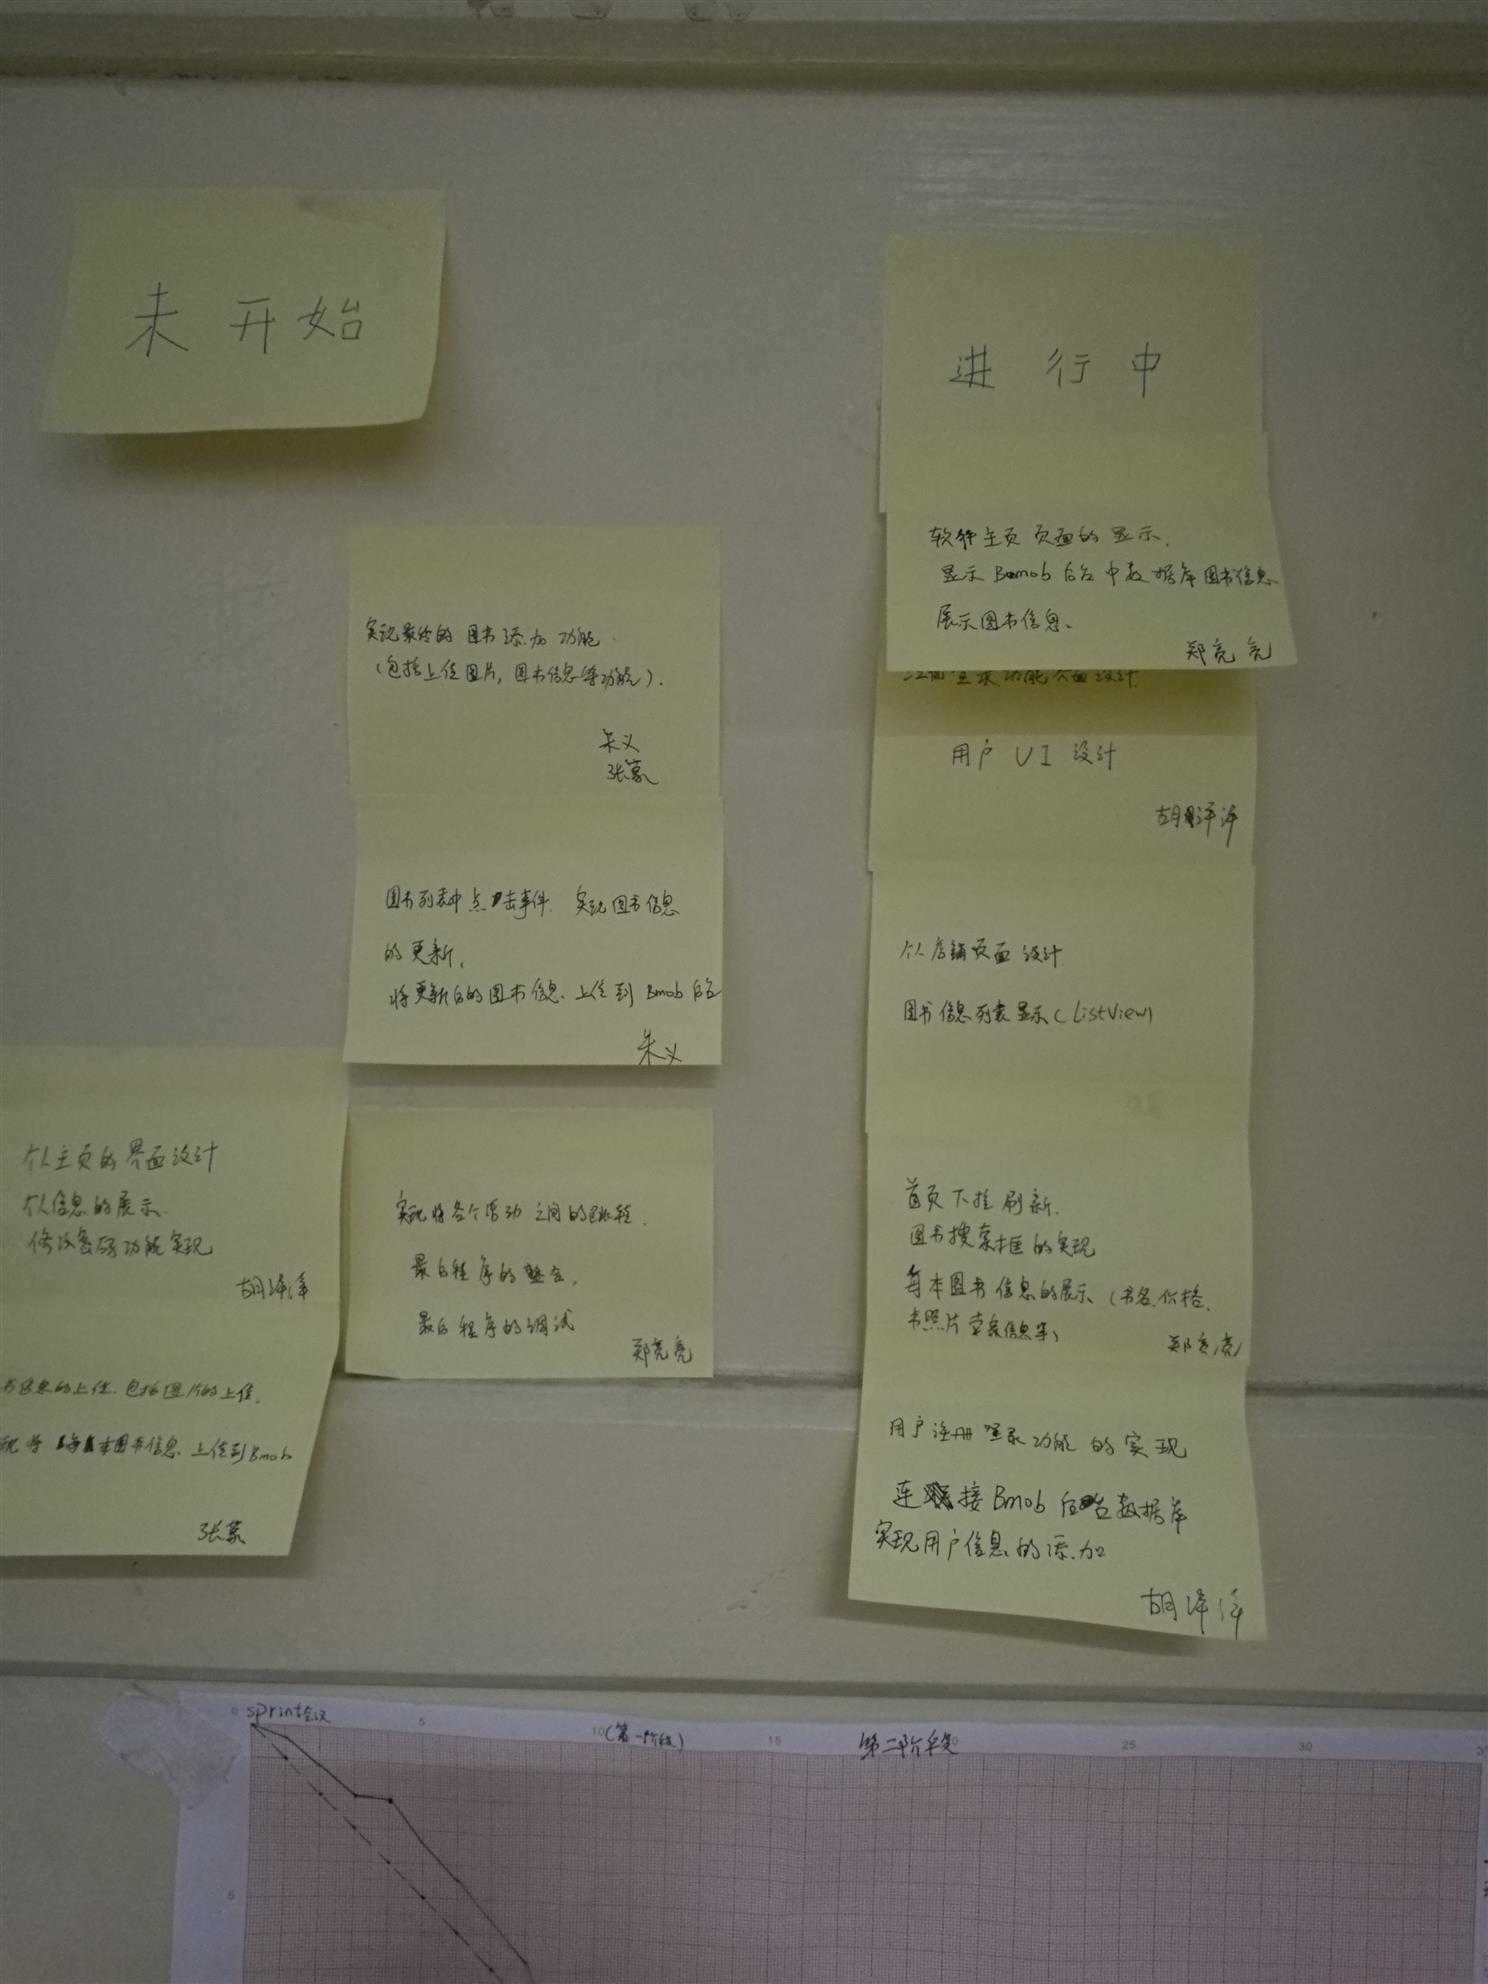 未开始
实现最终的图书添加功能
(包括上传图片,图书信息等功能).
朱义
张篆
图书列表中点击事件. 实现图书信息
的更新,
将更新后的图书信息上传到 Bmob 后台
朱义
个人主页的界面设计
个人信息的展示.
修改密码功能实现
胡泽洋
的上传.包括图片的上传.
现将每本图书信息上传到 Bmob
张篆
实现将各个活动之间的跳转.
最后程序的整合,
最后程序的调试
郑亮亮
进行中
软件主页页面的显示,
显示 Bmob 后台中数据库图书信息
展示图书信息、
郑亮亮
注册登录功能界面设计.
用户 UI 设计
胡泽洋
个人店铺页面设计
图书信息列表显示(ListView)
首页下拉刷新.
图书搜索框的实现
每本图书信息的展示(书名,价格,
书照片卖家信息等)
郑亮亮
用户注册登录功能的实现
连接Bmob后台数据库
实现用户信息的添加
胡泽洋
sprint会议
0 5 10 (第一阶段) 15 第二阶段 20 25 30
5